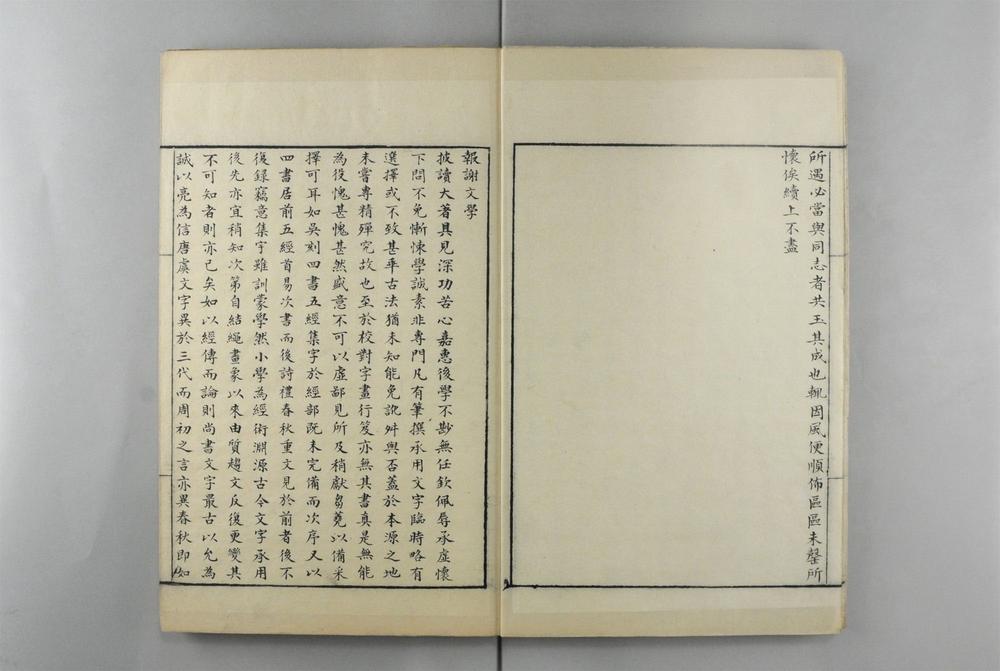 所遇必當與同志者共玉其成也輒因風便順佈區區未罄所
懷俟續上不盡
報謝文學
披讀大著具見深功苦心嘉惠後學不尠無任欽佩辱承虛懷
下問不免慚悚學誠素非專門凡有筆撰承用文字臨時略有
選擇或不致甚乖古法猶未知能免訛舛與否蓋於本源之地
未嘗專精殫究故也至於校對字畫行笈亦無其書真是無能
為役愧甚愧甚然盛意不可以虛鄙見所及稍獻芻蕘以備采
擇可耳如吳刻四書五經集字於經部既未完備而次序又以
四書居前五經首易次書而後詩禮春秋重文見於前者後不
復録竊意集字雖訓蒙學然小學為經術淵源古今文字承用
後先亦宜稍知次第自結繩畫象以來由質趨文反復更變其
不可知者則亦已矣如以經傳而論則尚書文字最古以允為
誠以亮為信唐虞文字異於三代而周初之言亦異春秋即如